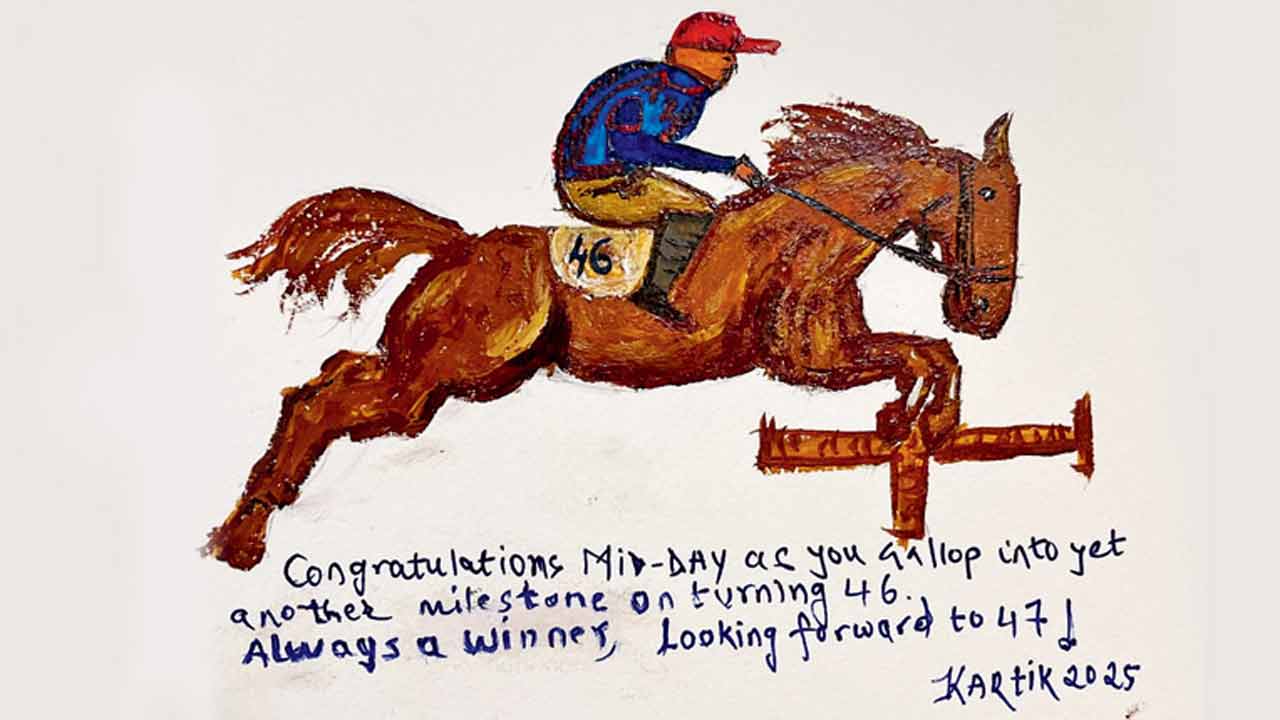 46
Congratulations MiD-DAY as you gallop into yet
another milestone on turning 46.
Always a winner, Looking forward to 47!
KARtiK 2025